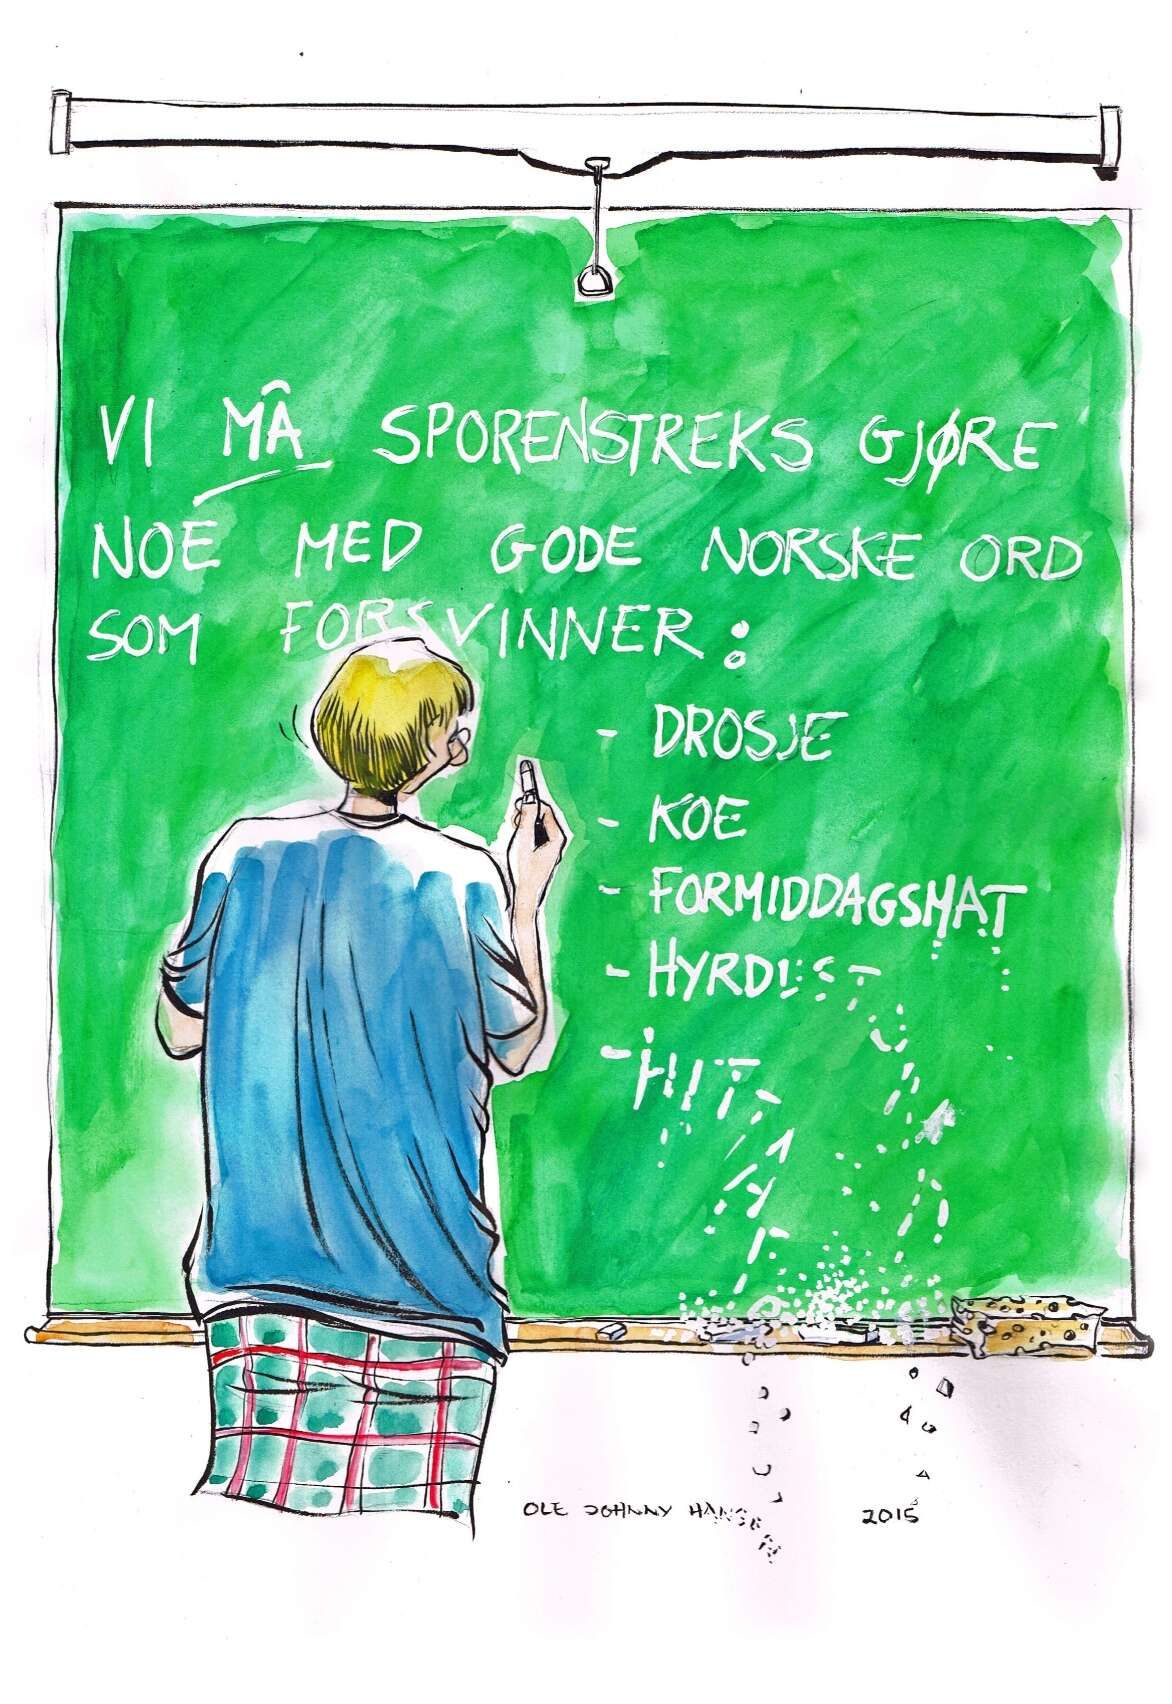 VI MÅ SPORENSTREKS GJØRE
NOE MED GODE NORSKE ORD
SOM FORSVINNER:
- DROSJE
- KOE
- FORMIDDAGSMAT
- HYRDIST
OLE JOHNNY HANSEN 2015